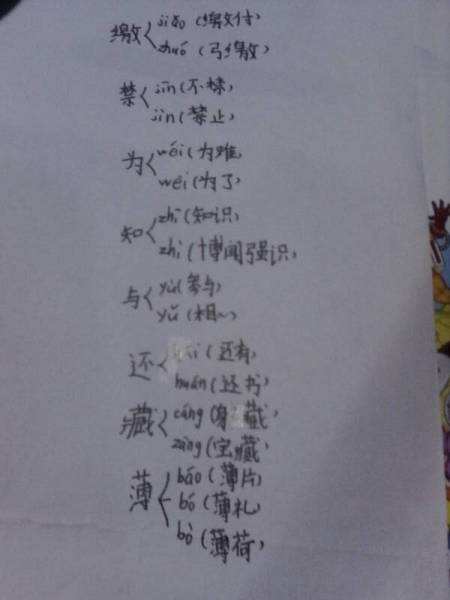 缴 jiǎo (缴交付)
zhuó (弓缴)
禁 jīn (不禁)
jìn (禁止)
为 wéi (为难)
wèi (为了)
知 zhī (知识)
zhì (博闻强识)
与 yù (参与)
yǔ (相~)
还 (还有)
huán (还书)
藏 cáng (藏)
zàng (宝藏)
薄 báo (薄片)
bó (薄礼)
bò (薄荷)